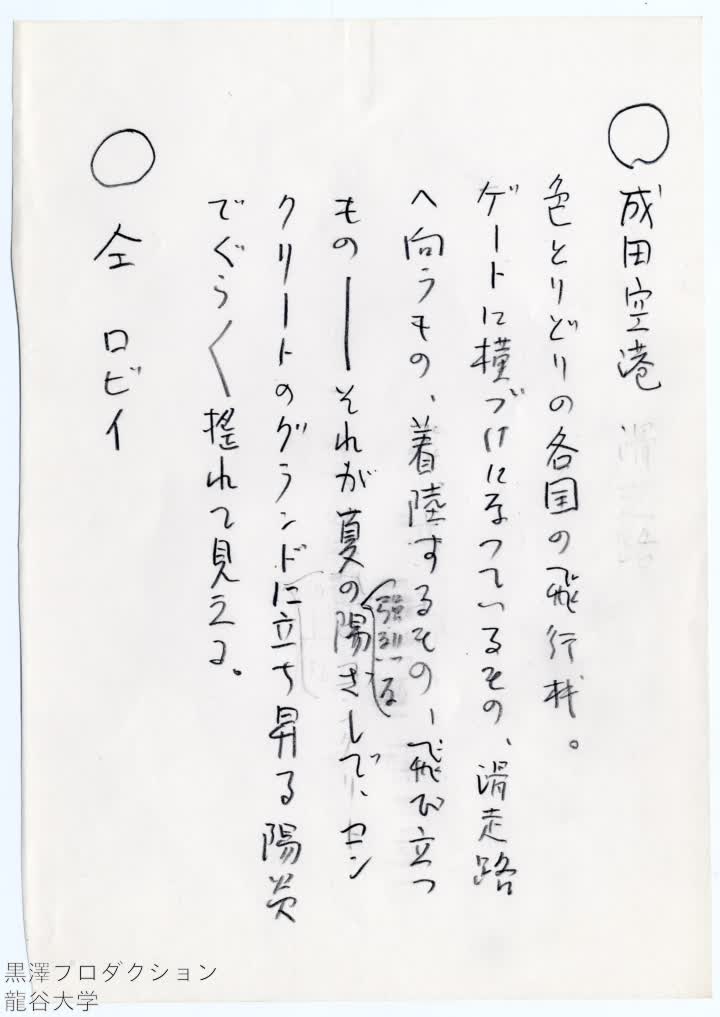 ○成田空港
色とりどりの各国の飛行機。
ゲートに横づけになっているもの、滑走路
へ向うもの、着陸するもの、飛び立つ
もの──それが夏の陽ざしで、コン
クリートのグランドに立ち昇る陽炎
でぐら〱揺れて見える。
○仝 ロビイ
黒澤プロダクション
龍谷大学